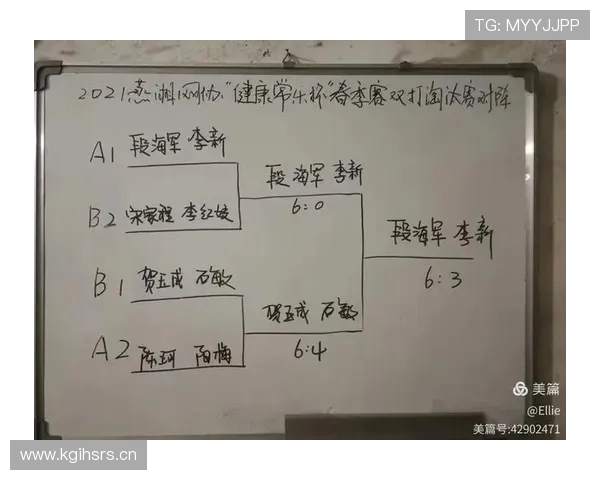 TG: MYYJJPP
2021蒸湘网协"健康常乐杯"春季赛双打淘汰赛对阵
A1 段海军 李新
段海军 李新
6:0
B2 宋家程 李红姣
段海军 李新
6:3
B1 贺五成 石敏
贺五成 石敏
6:4
A2 陈珂 阳梅
美篇
@Ellie
美篇号:42902471
www.kgihsrs.cn